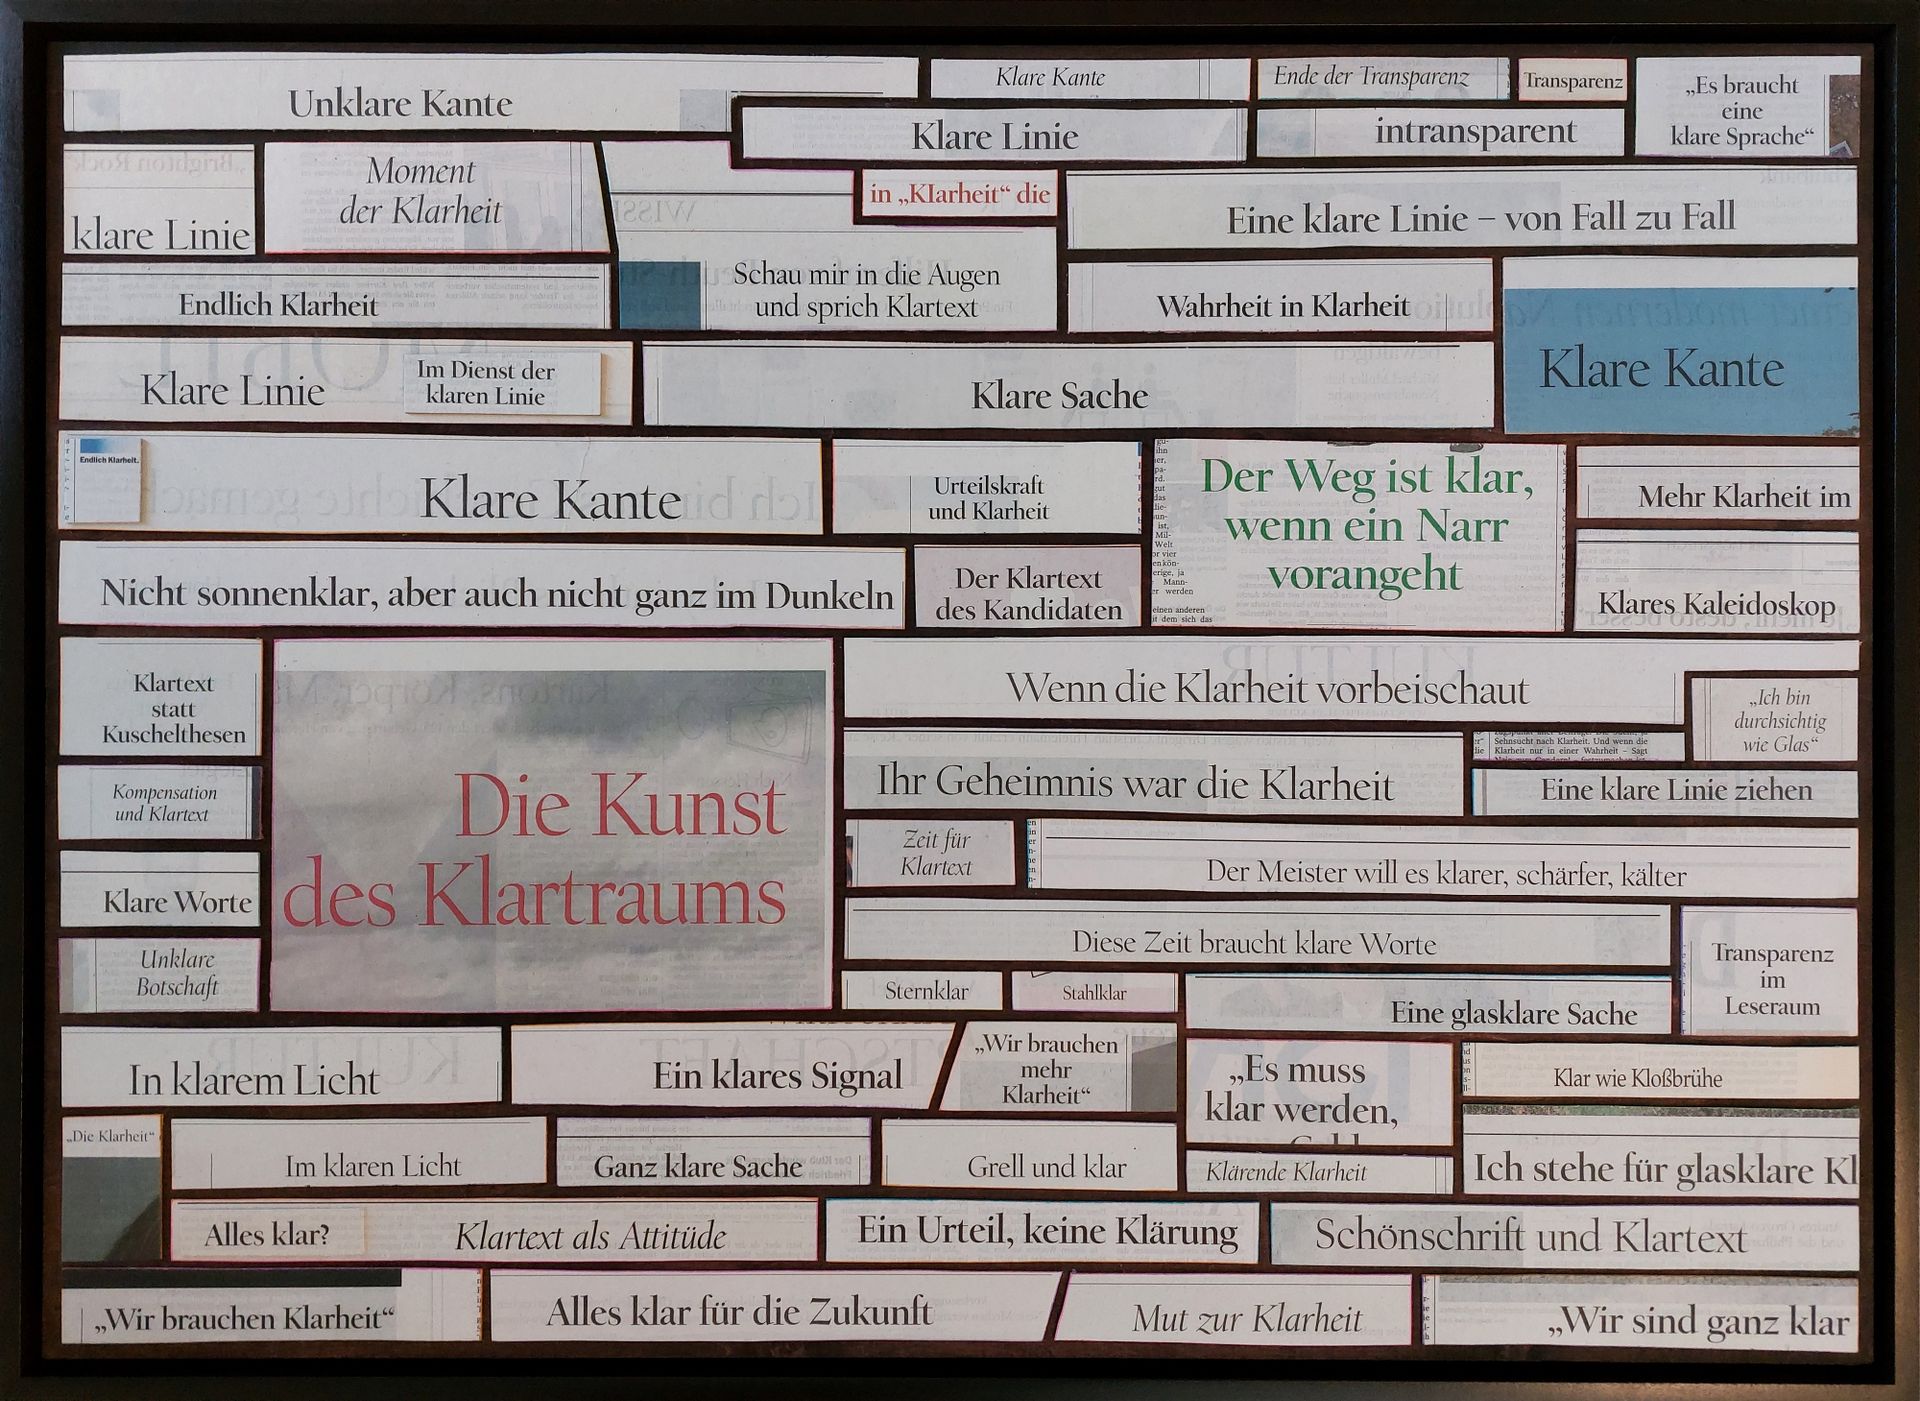 Unklare Kante
Klare Kante
Ende der Transparenz
Transparenz
„Es braucht
eine
klare Sprache“
Klare Linie
intransparent
klare Linie
Moment
der Klarheit
in „Klarheit“ die
Eine klare Linie – von Fall zu Fall
Endlich Klarheit
Schau mir in die Augen
und sprich Klartext
Wahrheit in Klarheit
Klare Kante
Klare Linie
Im Dienst der
klaren Linie
Klare Sache
Endlich Klarheit.
Klare Kante
Urteilskraft
und Klarheit
Der Weg ist klar,
wenn ein Narr
vorangeht
Mehr Klarheit im
Nicht sonnenklar, aber auch nicht ganz im Dunkeln
Der Klartext
des Kandidaten
Klares Kaleidoskop
Klartext
statt
Kuschelthesen
Die Kunst
des Klartraums
Wenn die Klarheit vorbeischaut
„Ich bin
durchsichtig
wie Glas“
Kompensation
und Klartext
Ihr Geheimnis war die Klarheit
Sehnsucht nach Klarheit. Und wenn die
Klarheit nur in einer Wahrheit – Sagt
Eine klare Linie ziehen
Zeit für
Klartext
Der Meister will es klarer, schärfer, kälter
Klare Worte
Diese Zeit braucht klare Worte
Transparenz
im
Leseraum
Unklare
Botschaft
Sternklar
Stahlklar
Eine glasklare Sache
In klarem Licht
Ein klares Signal
„Wir brauchen
mehr
Klarheit“
„Es muss
klar werden,
Klar wie Kloßbrühe
„Die Klarheit“
Im klaren Licht
Ganz klare Sache
Grell und klar
Klärende Klarheit
Ich stehe für glasklare Kl
Alles klar?
Klartext als Attitüde
Ein Urteil, keine Klärung
Schönschrift und Klartext
„Wir brauchen Klarheit“
Alles klar für die Zukunft
Mut zur Klarheit
„Wir sind ganz klar